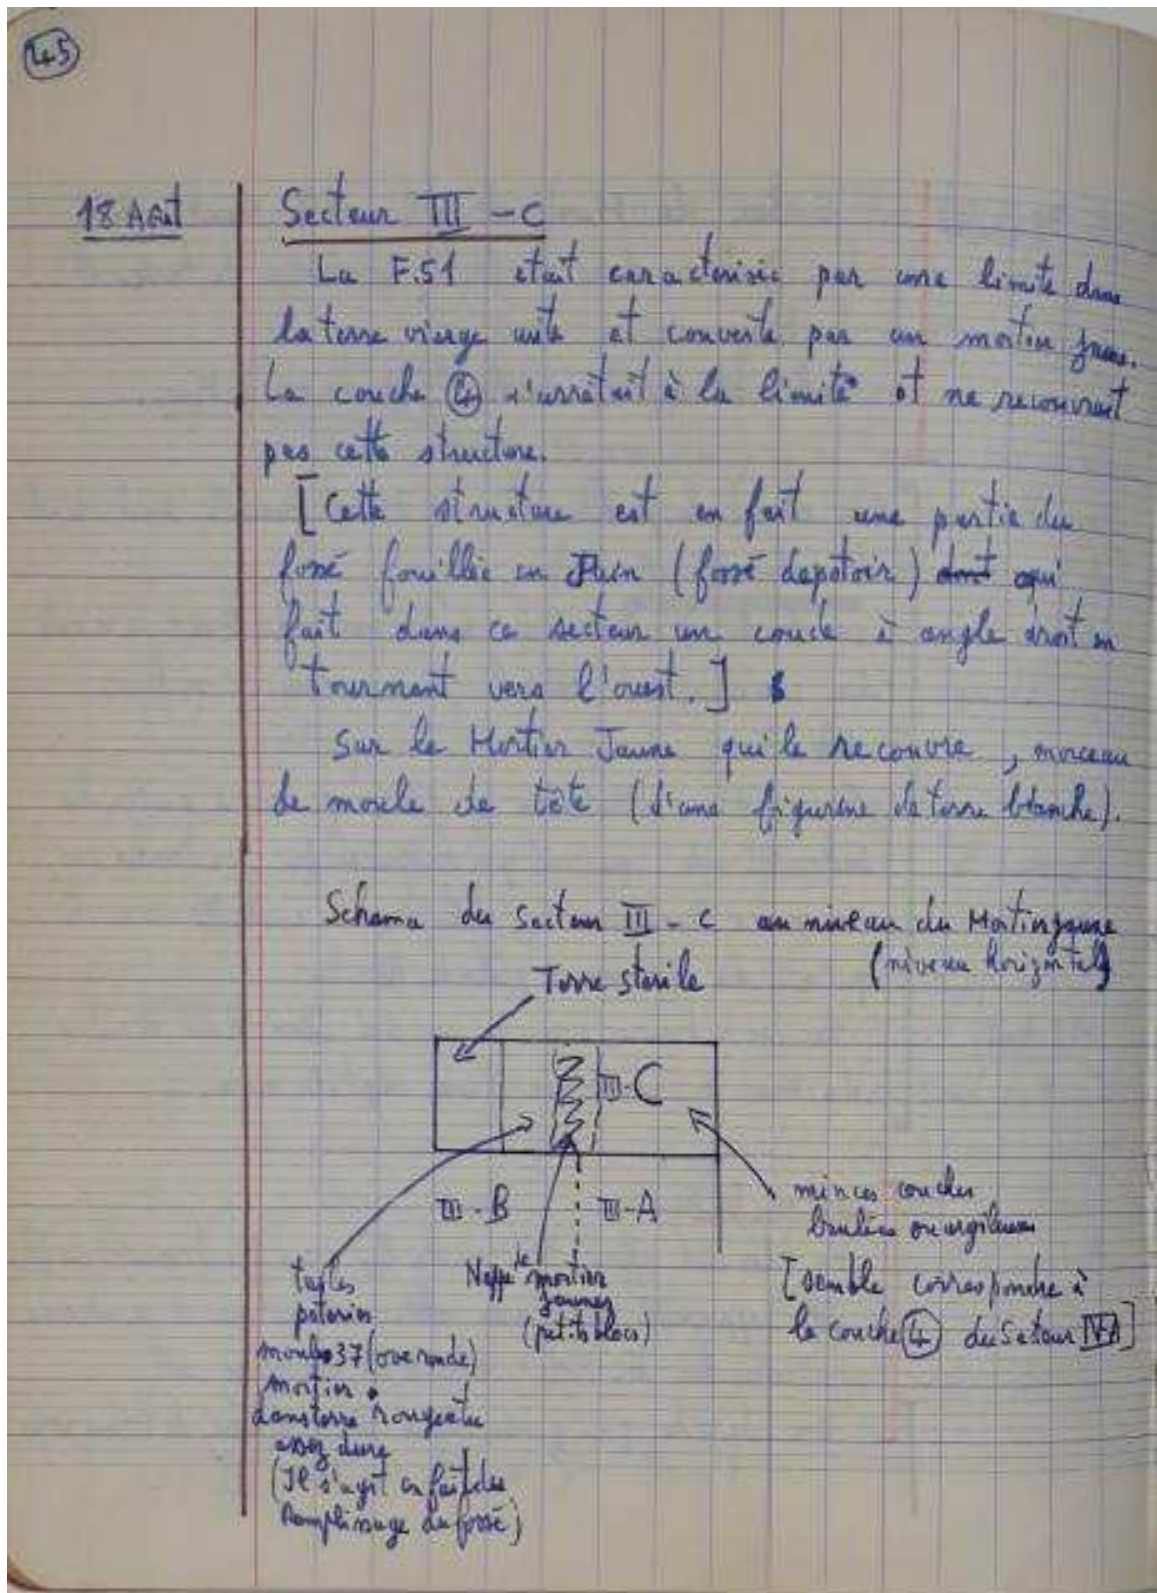 45
18 Août
Secteur III - C
La F.51 était caractérisée par une limite dans
la terre vierge et couverte par un mortier jaune.
La couche 4 s'arrêtait à la limite et ne recouvrait
pas cette structure.
[Cette structure est en fait une partie du
fossé fouillée en Juin (fossé depotoir) dont qui
fait dans ce secteur un coude à angle droit en
tournant vers l'ouest.]
Sur le Mortier Jaune qui le recouvre, morceau
de moule de tête (d'une figurine de terre blanche).
Schema du Secteur III - C au niveau du Mortier jaune
(niveau horizontal)
Terre sterile
III-C
III-B
III-A
minces couches
brulées ou argileuses
[semble correspondre à
la couche 4 du Secteur IV-A]
Nappe de mortier
jaune
(petits blocs)
tuiles
poteries
moule 37 (ove ronde)
mortier
dans terre rougeatre
assez dure
(Il s'agit en fait du
remplissage du fossé)